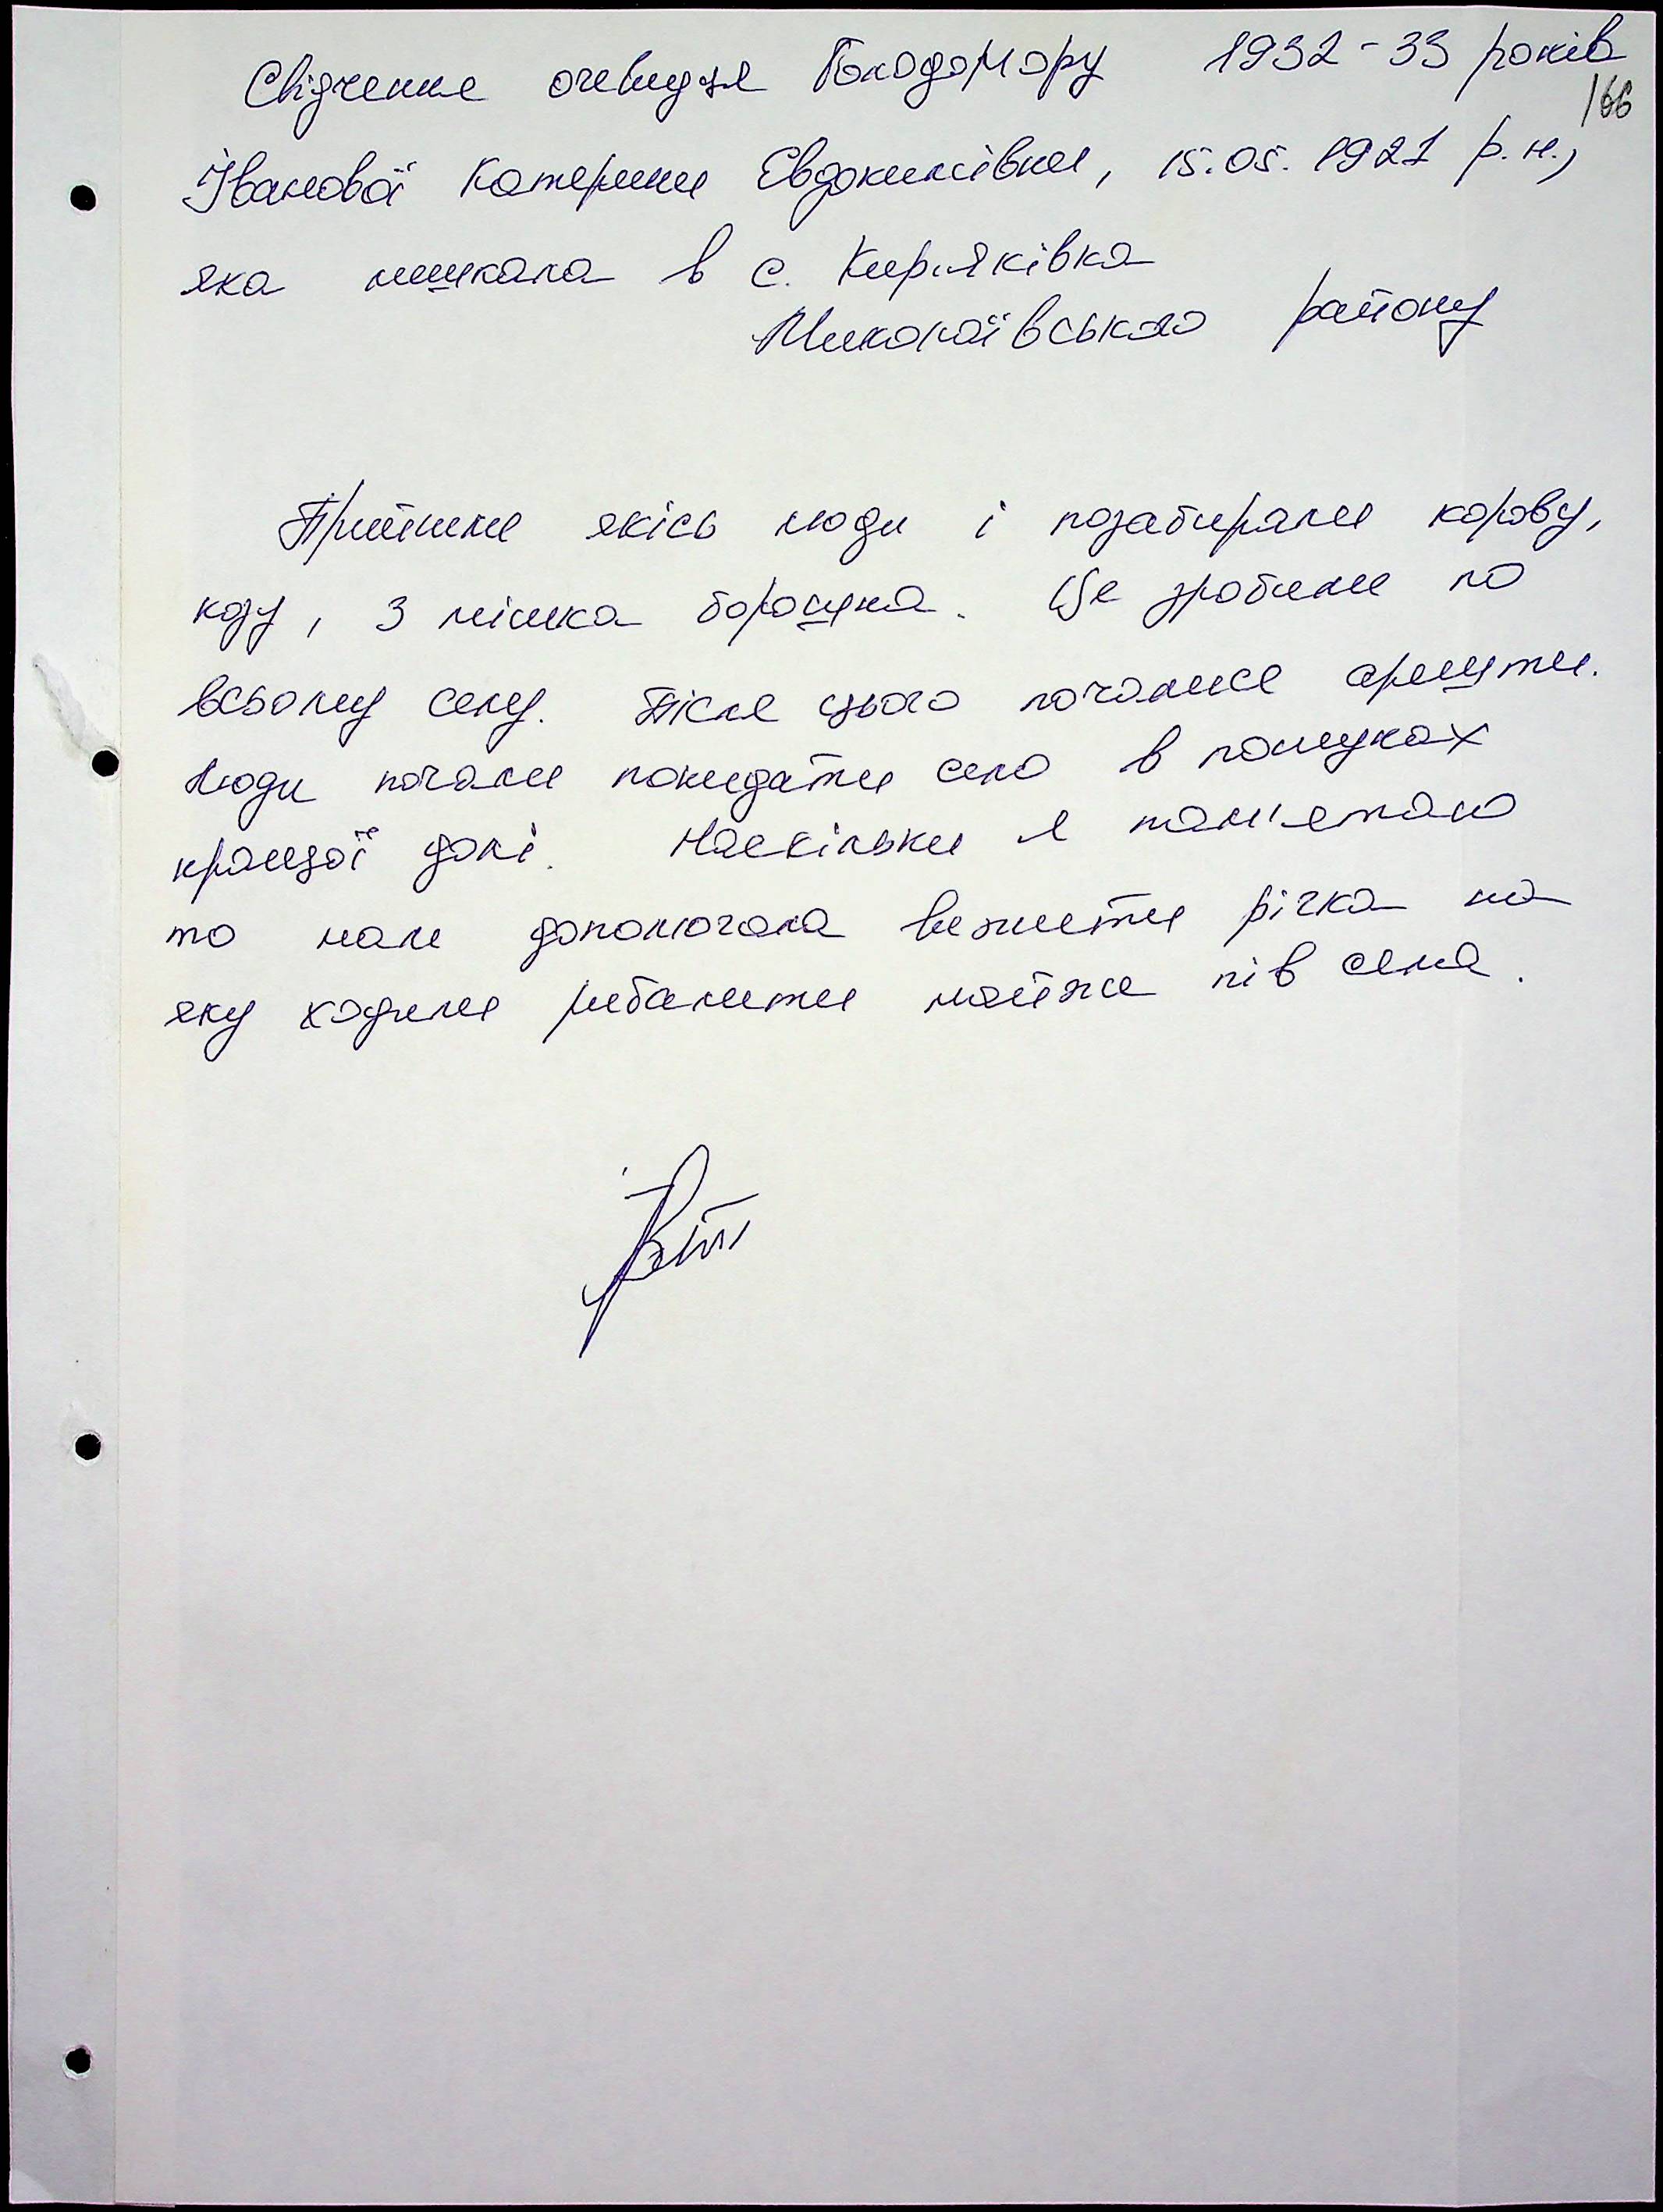 Свідчення очевидця Голодомору 1932-33 років
166
Іванової Катерини Евдокимівни, 15.05.1921 р.н.,
яка мешкала в с. Кир'яківка
Миколаївського району
Прийшли якісь люди і позабирали корову,
козу, 3 мішка борошна. Це зробили по
всьому селу. Після цього почалися арешти.
Люди почали покидати село в пошуках
кращої долі. Наскільки я пам'ятаю
то нам допомогала вижити річка на
яку ходили рибалити майже пів села.